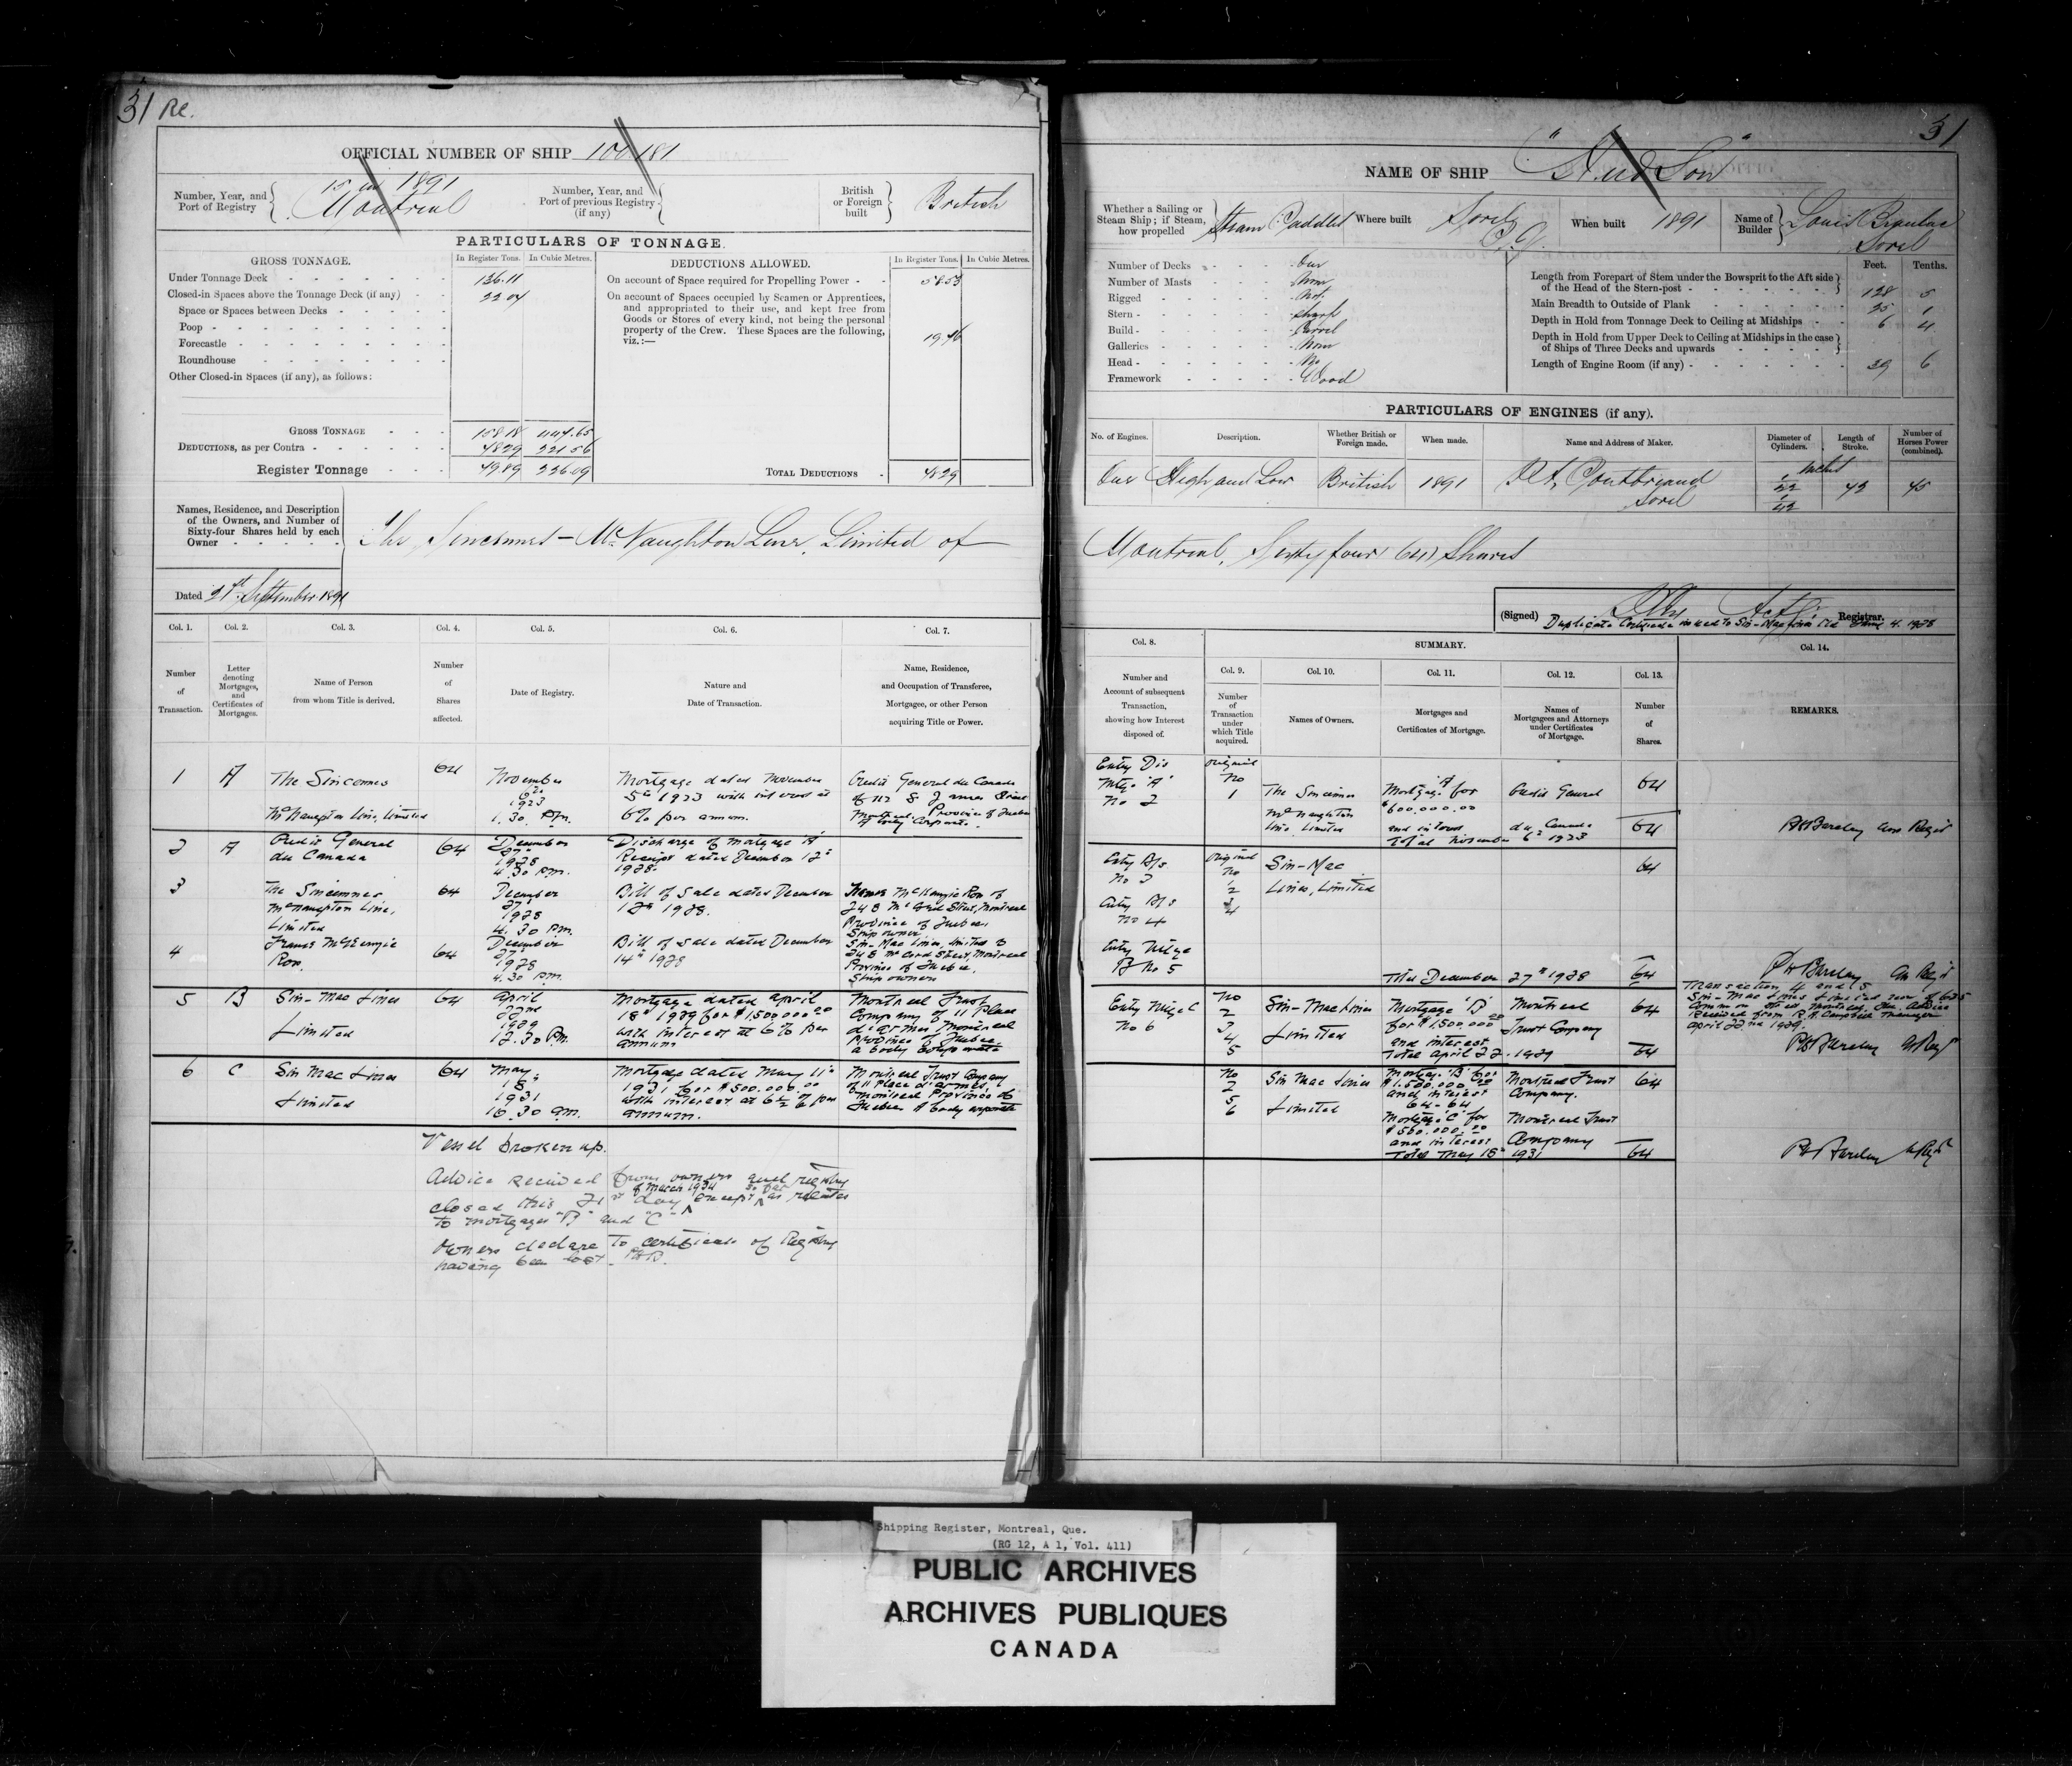 31 Re.
OFFICIAL NUMBER OF SHIP 100.181
Number, Year, and Port of Registry
15 in 1891
Montreal
Number, Year, and Port of previous Registry (if any)
British or Foreign built
British
PARTICULARS OF TONNAGE.
GROSS TONNAGE.
In Register Tons. In Cubic Metres.
Under Tonnage Deck 136.11
Closed-in Spaces above the Tonnage Deck (if any) 22 04
Space or Spaces between Decks
Poop
Forecastle
Roundhouse
Other Closed-in Spaces (if any), as follows:
GROSS TONNAGE
DEDUCTIONS, as per Contra 221 56
Register Tonnage 226.09
DEDUCTIONS ALLOWED.
In Register Tons. In Cubic Metres.
On account of Space required for Propelling Power
On account of Spaces occupied by Seamen or Apprentices,
and appropriated to their use, and kept free from
Goods or Stores of every kind, not being the personal
property of the Crew. These Spaces are the following,
viz.:—
TOTAL DEDUCTIONS
Names, Residence, and Description
of the Owners, and Number of
Sixty-four Shares held by each
Owner
The Sincennes – McNaughton Line, Limited of
Dated 21st September 1891
Col. 1. Col. 2. Col. 3. Col. 4. Col. 5. Col. 6. Col. 7.
Number of Transaction.
Letter denoting Mortgages, and Certificates of Mortgages.
Name of Person from whom Title is derived.
Number of Shares affected.
Date of Registry.
Nature and Date of Transaction.
Name, Residence, and Occupation of Transferee, Mortgagee, or other Person acquiring Title or Power.
1 A The Sincennes McNaughton Line, Limited 64
November 6th 1923 1.30. Pm.
Mortgage dated November
5th 1923 with interest at
6% per annum.
Credit General du Canada
of 112 St James Street
Montreal, Province of Quebec
A body Corporate.
2 A Credit General du Canada 64
December 27th 1928 4.30 p.m.
Discharge of mortgage "A"
Receipt dated December 12th
1928.
3 The Sincennes McNaughton Line, Limited 64
December 27th 1928 4.30 Pm.
Bill of Sale dated December
12th 1928.
McKenzie Ross of
248 McCord Street, Montreal
Province of Quebec
Ship owner
4 McKenzie Ross. 64
December 27th 1928 4.30 pm.
Bill of sale dated December
14th 1928
Sin-Mac Lines, Limited of
248 McCord Street, Montreal
Province of Quebec,
Ship owners
5 B Sin-Mac Lines Limited 64
April 22nd 1929 12.30 P.m.
Mortgage dated April
18th 1929 for $1500000.00
with interest at 6% per
annum
Montreal Trust
Company of 11 Place
d'armes, Montreal
Province of Quebec,
a body corporate
6 C Sin Mac Lines Limited 64
May 18th 1931 10.30 am.
Mortgage dated May 11th
1931 for $500.000.00
with interest at 6½% per
annum.
Montreal Trust Company
of 11 Place d'armes,
Montreal Province of
Quebec A body corporate
Vessel broken up.
Advice received from owners and registry
closed this 21st day of March 1934 except so far as relates
to mortgages "B" and "C"
Owners declare To certificate of Registry
having been lost. PHB.
31
NAME OF SHIP
Whether a Sailing or Steam Ship; if Steam, how propelled
Steam Paddled
Where built Sorel P.Q.
When built 1891
Name of Builder Louis Sorel
Number of Decks One
Number of Masts None
Rigged Not
Stern Sharp
Build Carvel
Galleries None
Head No
Framework Wood
Feet. Tenths.
Length from Forepart of Stem under the Bowsprit to the Aft side of the Head of the Stern-post 128 5
Main Breadth to Outside of Plank 25 1
Depth in Hold from Tonnage Deck to Ceiling at Midships 6 4
Depth in Hold from Upper Deck to Ceiling at Midships in the case of Ships of Three Decks and upwards
Length of Engine Room (if any) 39 6
PARTICULARS OF ENGINES (if any).
No. of Engines. Description. Whether British or Foreign made. When made. Name and Address of Maker. Diameter of Cylinders. Length of Stroke. Number of Horses Power (combined).
One High and Low British 1891 Sorel Inches 1/22 1/42 42 45
Montreal, Sixty four (64) Shares
(Signed) Actg. Registrar.
Duplicate Certificate issued to Sin-Mac Lines Ltd June 4. 1928
Col. 8. SUMMARY. Col. 14.
Col. 9. Col. 10. Col. 11. Col. 12. Col. 13.
Number and Account of subsequent Transaction, showing how Interest disposed of.
Number of Transaction under which Title acquired.
Names of Owners.
Mortgages and Certificates of Mortgage.
Names of Mortgagees and Attorneys under Certificates of Mortgage.
Number of Shares.
REMARKS.
Entry Dis
Mtge "A"
No 2
Original No 1
The Sincennes McNaughton Line Limited
Mortgage "A" for $600.000.00
and interest
Credit General du Canada
Total November 6th 1923
64
64
PHBarclay
Entry B/s No 3
Entry B/s No 4
Original No
Sin-Mac
Lines, Limited
64
Entry Mtge B No 5
This December 27th 1928 64
PHBarclay
Transaction 4 and 5
Sin-Mac Lines Limited now of 685
Common Street Montreal, Que. Advice
Received from R.A. Campbell Manager
April 22nd 1929.
PHBarclay
Entry Mtge C No 6
No 2 3 4 5
Sin-Mac Lines Limited
Mortgage "B"
for $1,500.000.00
and interest
Montreal Trust Company
64
Total April 22. 1929 64
No 2 5 6
Sin Mac Lines Limited
Mortgage "B" for
$1.500.000.00
and interest
64-64
Mortgage "C" for
$500.000.00
and interest
Montreal Trust Company.
Montreal Trust Company
64
Total May 18th 1931 64
PHBarclay
Shipping Register, Montreal, Que.
(RG 12, A 1, Vol. 411)
PUBLIC ARCHIVES
ARCHIVES PUBLIQUES
CANADA